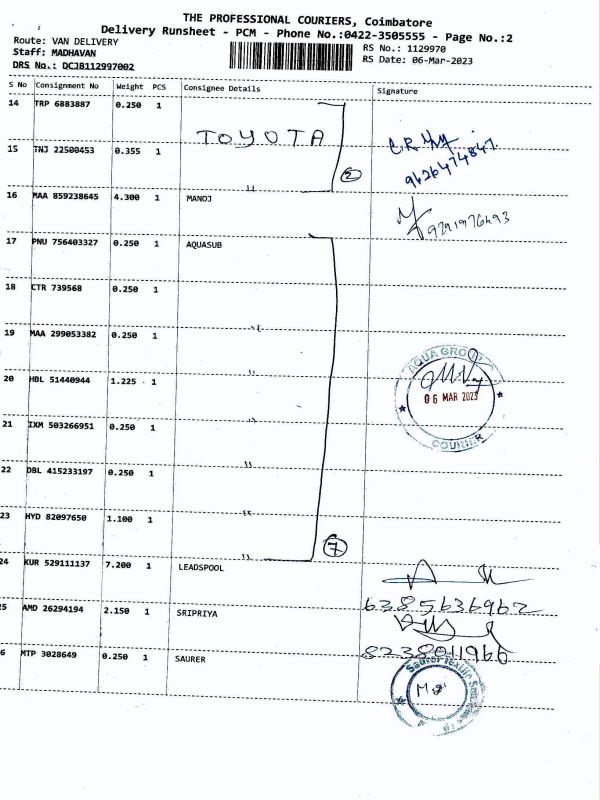 THE PROFESSIONAL COURIERS, Coimbatore
Delivery Runsheet - PCM - Phone No.:0422-3505555 - Page No.:2
Route: VAN DELIVERY
RS No.: 1129970
Staff: MADHAVAN
RS Date: 06-Mar-2023
DRS No.: DCJB112997002
S No Consignment No Weight PCS Consignee Details Signature
14 TRP 6883887 0.250 1
TOYOTA
15 TNJ 22500453 0.355 1
9626474847
2
16 MAA 859238645 4.300 1 MANOJ
17 PNU 756403327 0.250 1 AQUASUB
18 CTR 739568 0.250 1
19 MAA 299053382 0.250 1
AQUA GROUP
20 HBL 51440944 1.225 1
06 MAR 2023
21 IXM 503266951 0.250 1
COURIER
22 DBL 415233197 0.250 1
23 HYD 82097650 1.100 1
7
24 KUR 529111137 7.200 1 LEADSPOOL
6385636962
25 AMD 26294194 2.150 1 SRIPRIYA
8238011966
26 MTP 3028649 0.250 1 SAURER